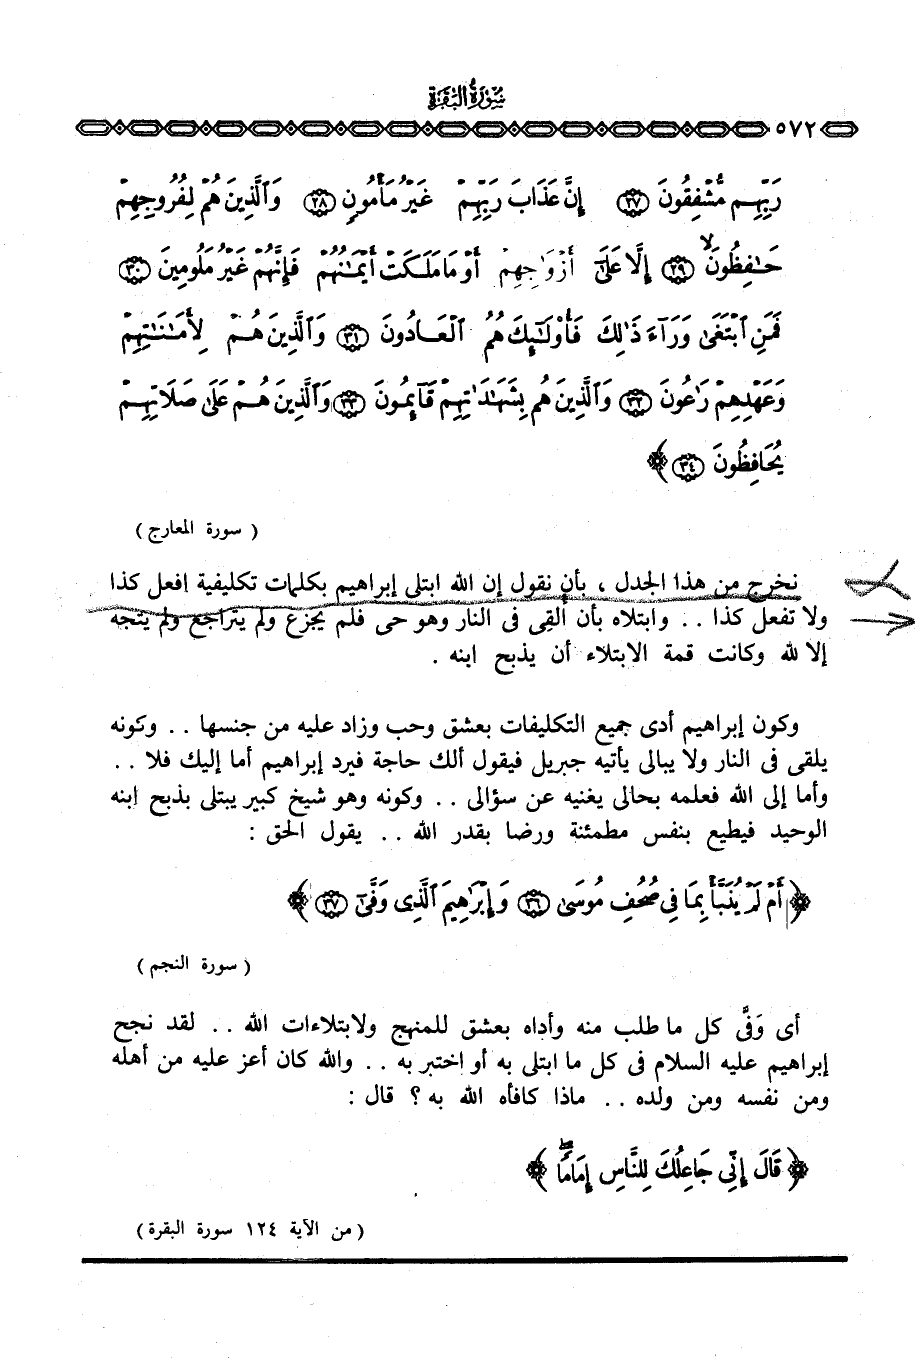 سُورَةُ البَقَرَة
٥٧٢
رَبِّهِم مُّشْفِقُونَ ٢٧ إِنَّ عَذَابَ رَبِّهِمْ غَيْرُ مَأْمُونٍ ٢٨ وَالَّذِينَ هُمْ لِفُرُوجِهِمْ
حَٰفِظُونَ ٢٩ إِلَّا عَلَىٰٓ أَزْوَٰجِهِمْ أَوْ مَا مَلَكَتْ أَيْمَٰنُهُمْ فَإِنَّهُمْ غَيْرُ مَلُومِينَ ٣٠
فَمَنِ ابْتَغَىٰ وَرَآءَ ذَٰلِكَ فَأُوْلَٰٓئِكَ هُمُ الْعَادُونَ ٣١ وَالَّذِينَ هُمْ لِأَمَٰنَٰتِهِمْ
وَعَهْدِهِمْ رَٰعُونَ ٣٢ وَالَّذِينَ هُم بِشَهَٰدَٰتِهِمْ قَآئِمُونَ ٣٣ وَالَّذِينَ هُمْ عَلَىٰ صَلَاتِهِمْ
يُحَافِظُونَ ٣٤ ﴾
( سورة المعارج )
نخرج من هذا الجدل ، بأن نقول إن الله ابتلى إبراهيم بكلمات تكليفية افعل كذا
ولا تفعل كذا . . وابتلاه بأن أُلقِى فى النار وهو حى فلم يجزع ولم يتراجع ولم يتجه
إلا لله وكانت قمة الابتلاء أن يذبح ابنه .
وكون إبراهيم أدى جميع التكليفات بعشق وحب وزاد عليه من جنسها . . وكونه
يلقى فى النار ولا يبالى يأتيه جبريل فيقول ألك حاجة فيرد إبراهيم أما إليك فلا . .
وأما إلى الله فعلمه بحالى يغنيه عن سؤالى . . وكونه وهو شيخ كبير يبتلى بذبح ابنه
الوحيد فيطيع بنفس مطمئنة ورضا بقدر الله . . يقول الحق :
﴿ أَمْ لَمْ يُنَبَّأْ بِمَا فِي صُحُفِ مُوسَىٰ ٣٦ وَإِبْرَٰهِيمَ الَّذِى وَفَّىٰٓ ٣٧ ﴾
( سورة النجم )
أى وَفَّى كل ما طلب منه وأداه بعشق للمنهج ولابتلاءات الله . . لقد نجح
إبراهيم عليه السلام فى كل ما ابتلى به أو اختبر به . . والله كان أعز عليه من أهله
ومن نفسه ومن ولده . . ماذا كافأه الله به ؟ قال :
﴿ قَالَ إِنِّي جَاعِلُكَ لِلنَّاسِ إِمَامًا ۖ ﴾
( من الآية ١٢٤ سورة البقرة )